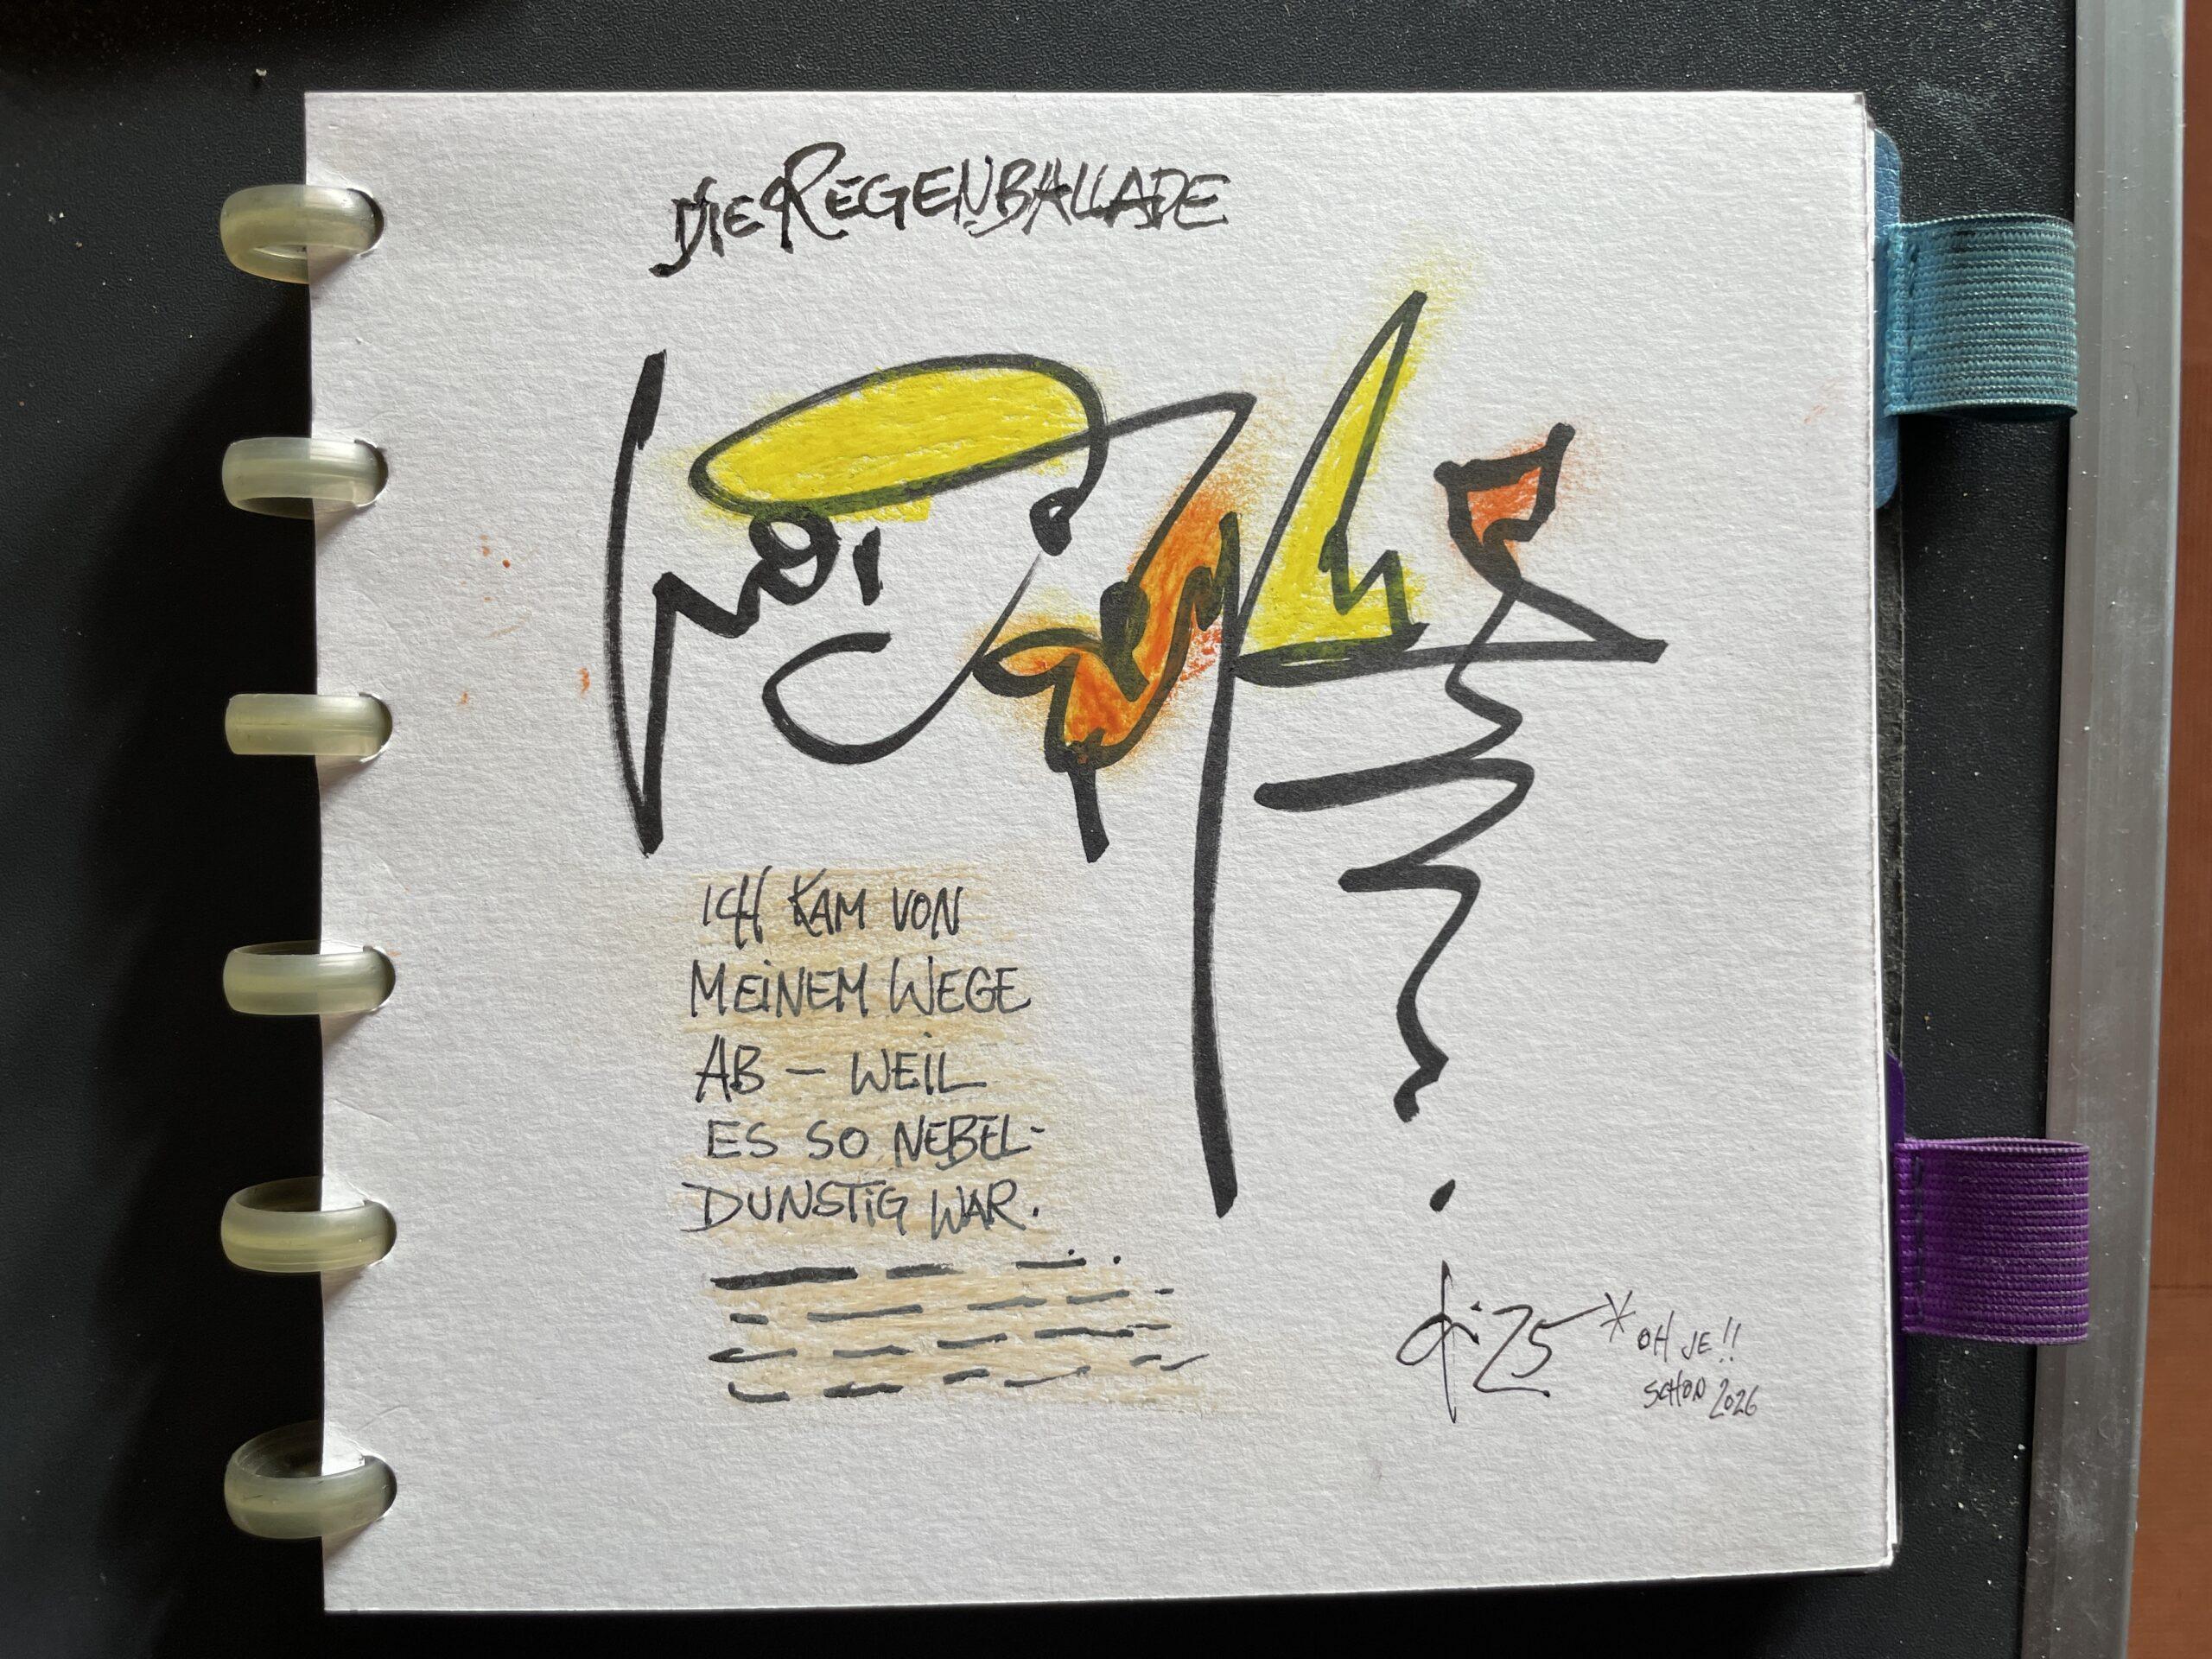 DIE REGENBALLADE
ICH KAM VON
MEINEM WEGE
AB – WEIL
ES SO NEBEL-
DUNSTIG WAR.
25 * OH JE!!
SCHON 2026